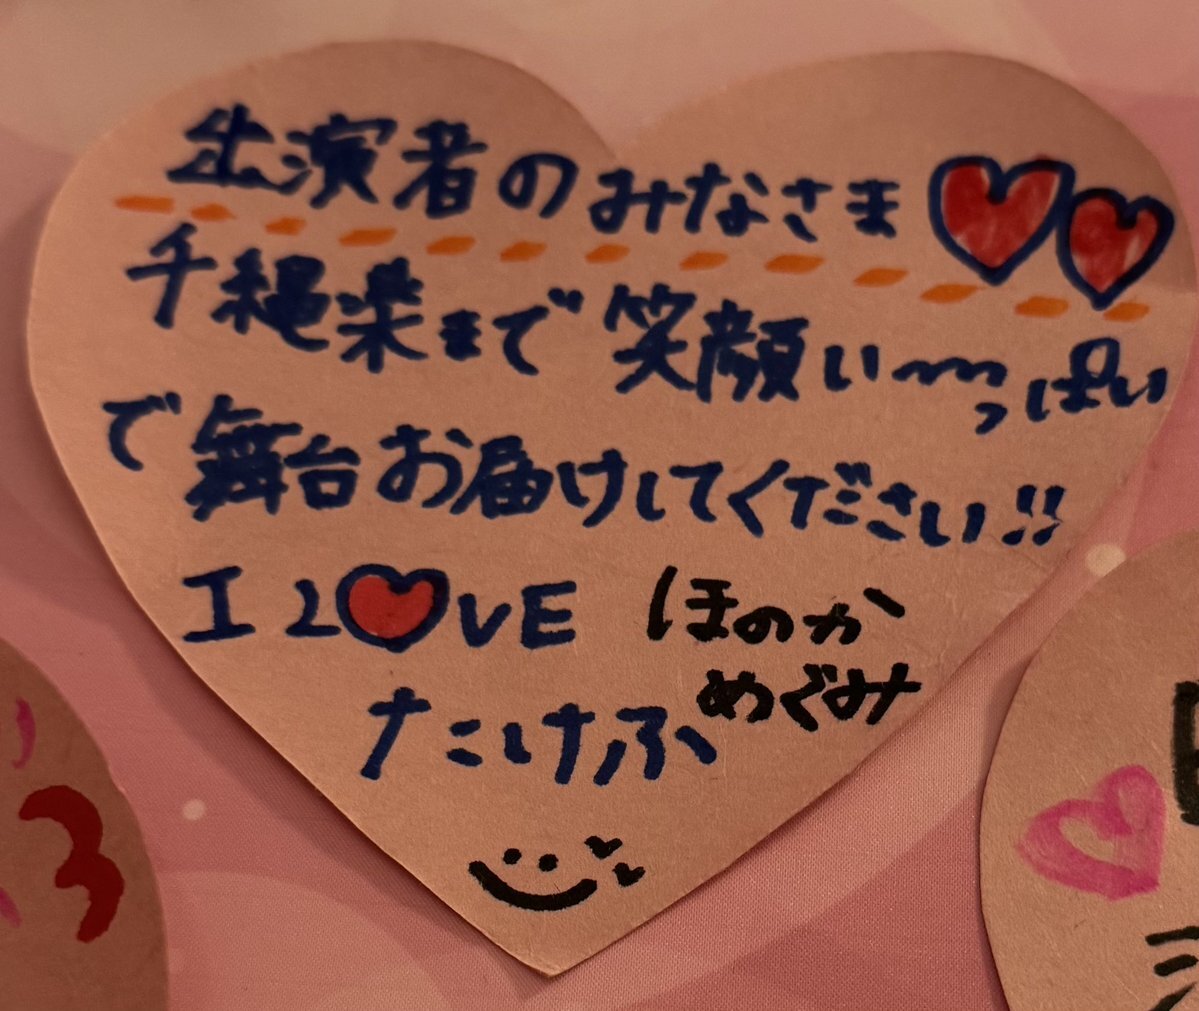 出演者のみなさま
千穐楽まで笑顔い〜〜っぱい
で舞台お届けしてください!!
I L❤VE ほのか
めぐみ
たけふ